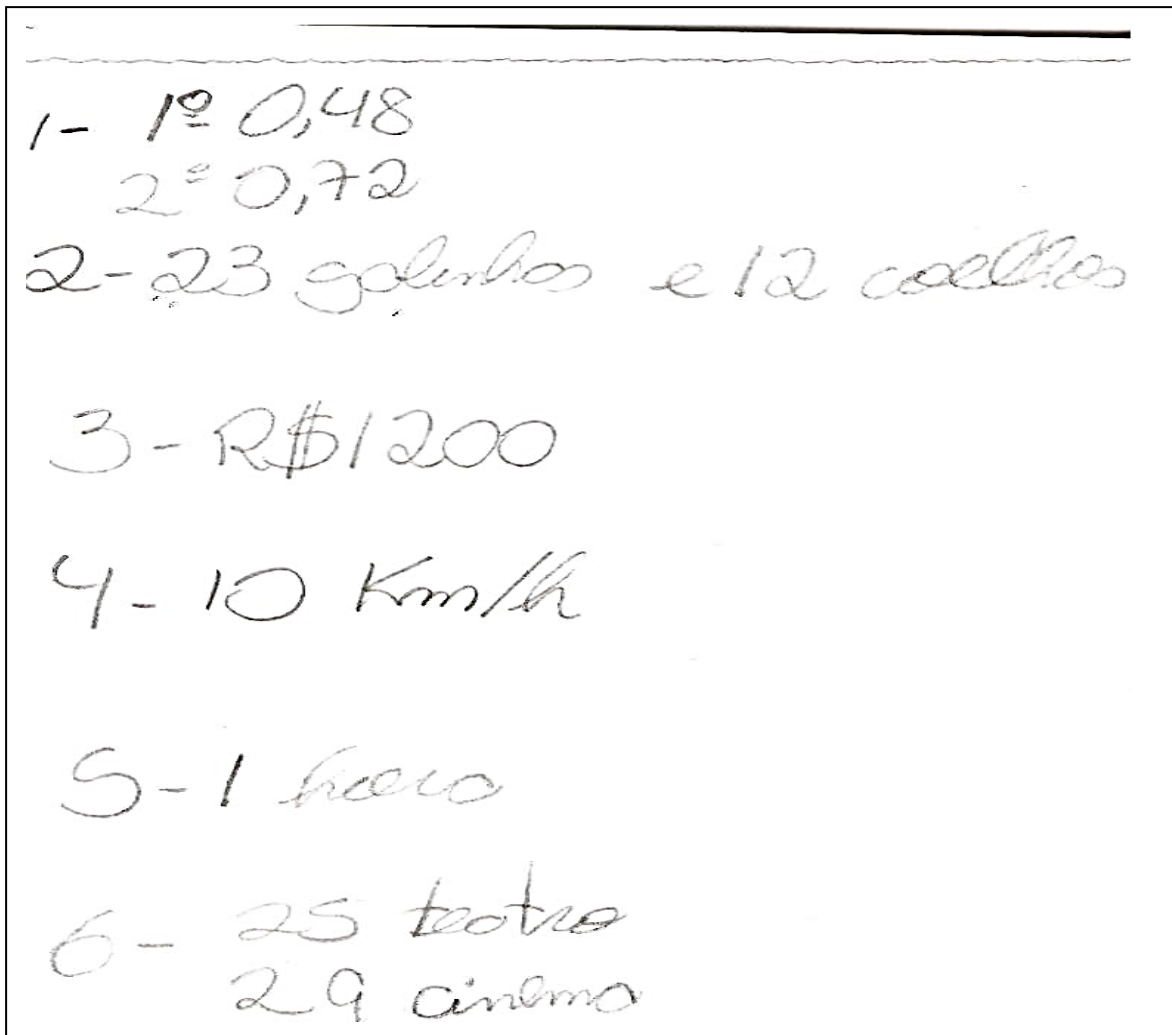 1- 1º 0,48
2º 0,72
2- 23 galinhas e 12 coelhos
3- R$1200
4- 10 Km/h
5- 1 hora
6- 25 teatro
29 cinema